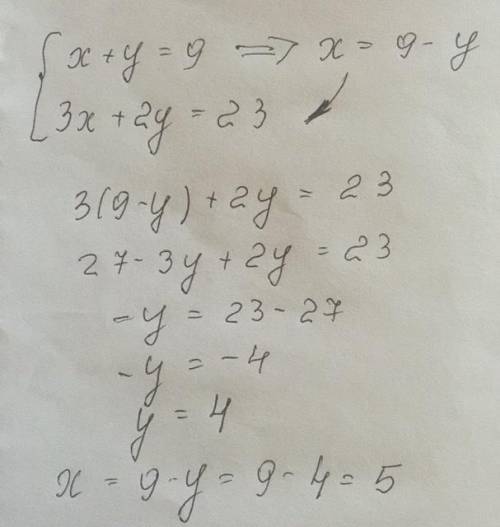 x + y = 9 ⟹ x = 9 - y
3x + 2y = 23
3(9-y) + 2y = 23
27 - 3y + 2y = 23
-y = 23 - 27
-y = -4
y = 4
x = 9 - y = 9 - 4 = 5